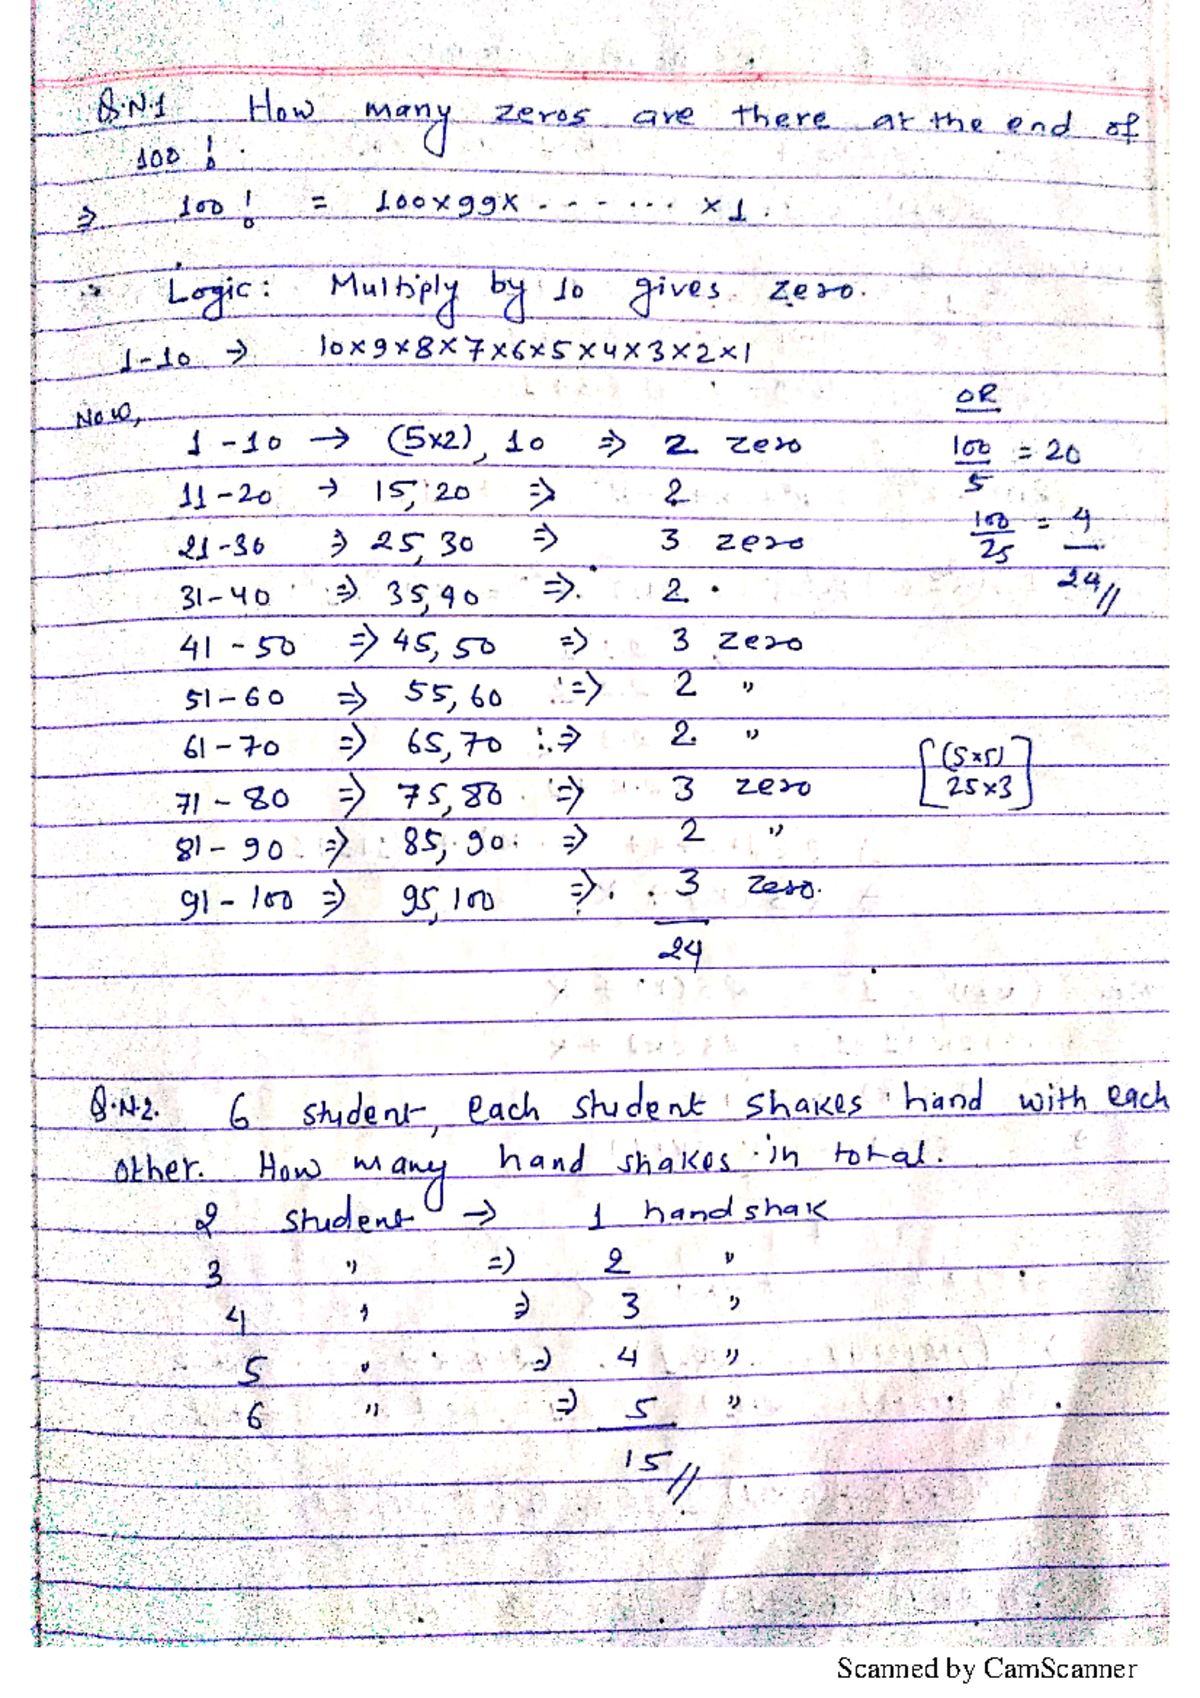 Q.N.1 How many zeros are there at the end of
100 !
⇒ 100 ! = 100×99× - - - - ... × 1.
∴ Logic: Multiply by 10 gives zero.
1-10 → 10×9×8×7×6×5×4×3×2×1
Now,
1-10 → (5×2), 10 ⇒ 2 zero
11-20 → 15, 20 ⇒ 2
21-30 ⇒ 25, 30 ⇒ 3 zero
31-40 ⇒ 35, 40 ⇒ 2
41-50 ⇒ 45, 50 ⇒ 3 zero
51-60 ⇒ 55, 60 ⇒ 2 "
61-70 ⇒ 65, 70 ⇒ 2 "
71-80 ⇒ 75, 80 ⇒ 3 zero
81-90 ⇒ 85, 90 ⇒ 2 "
91-100 ⇒ 95, 100 ⇒ 3 zero.
24
OR
100/5 = 20
100/25 = 4
24//
[(5×5)
25×3]
Q.N.2. 6 student, each student shakes hand with each
other. How many hand shakes in total.
2 student → 1 handshak
3 " ⇒ 2 "
4 " ⇒ 3 "
5 " ⇒ 4 "
6 " ⇒ 5 "
15//
Scanned by CamScanner